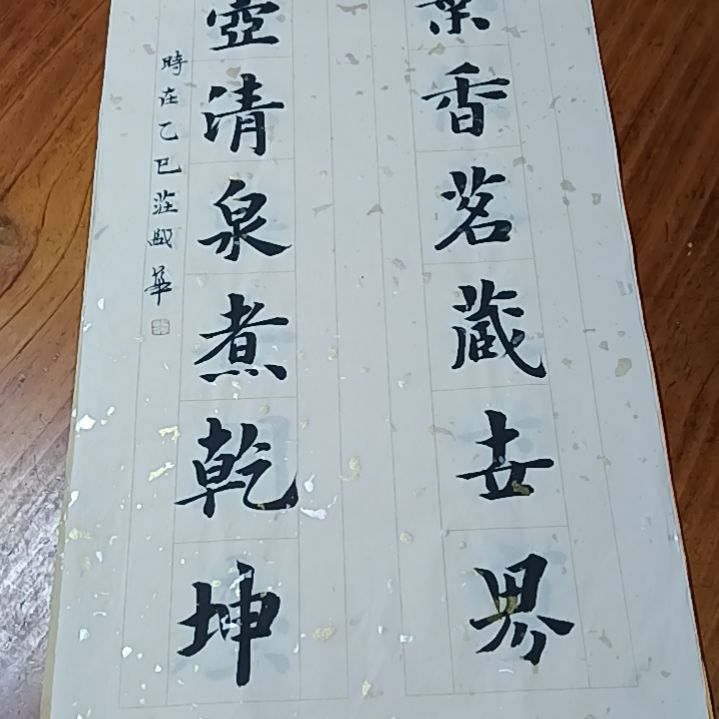 葉香茗蔵世界
壺清泉煮乾坤
時在乙巳莊華